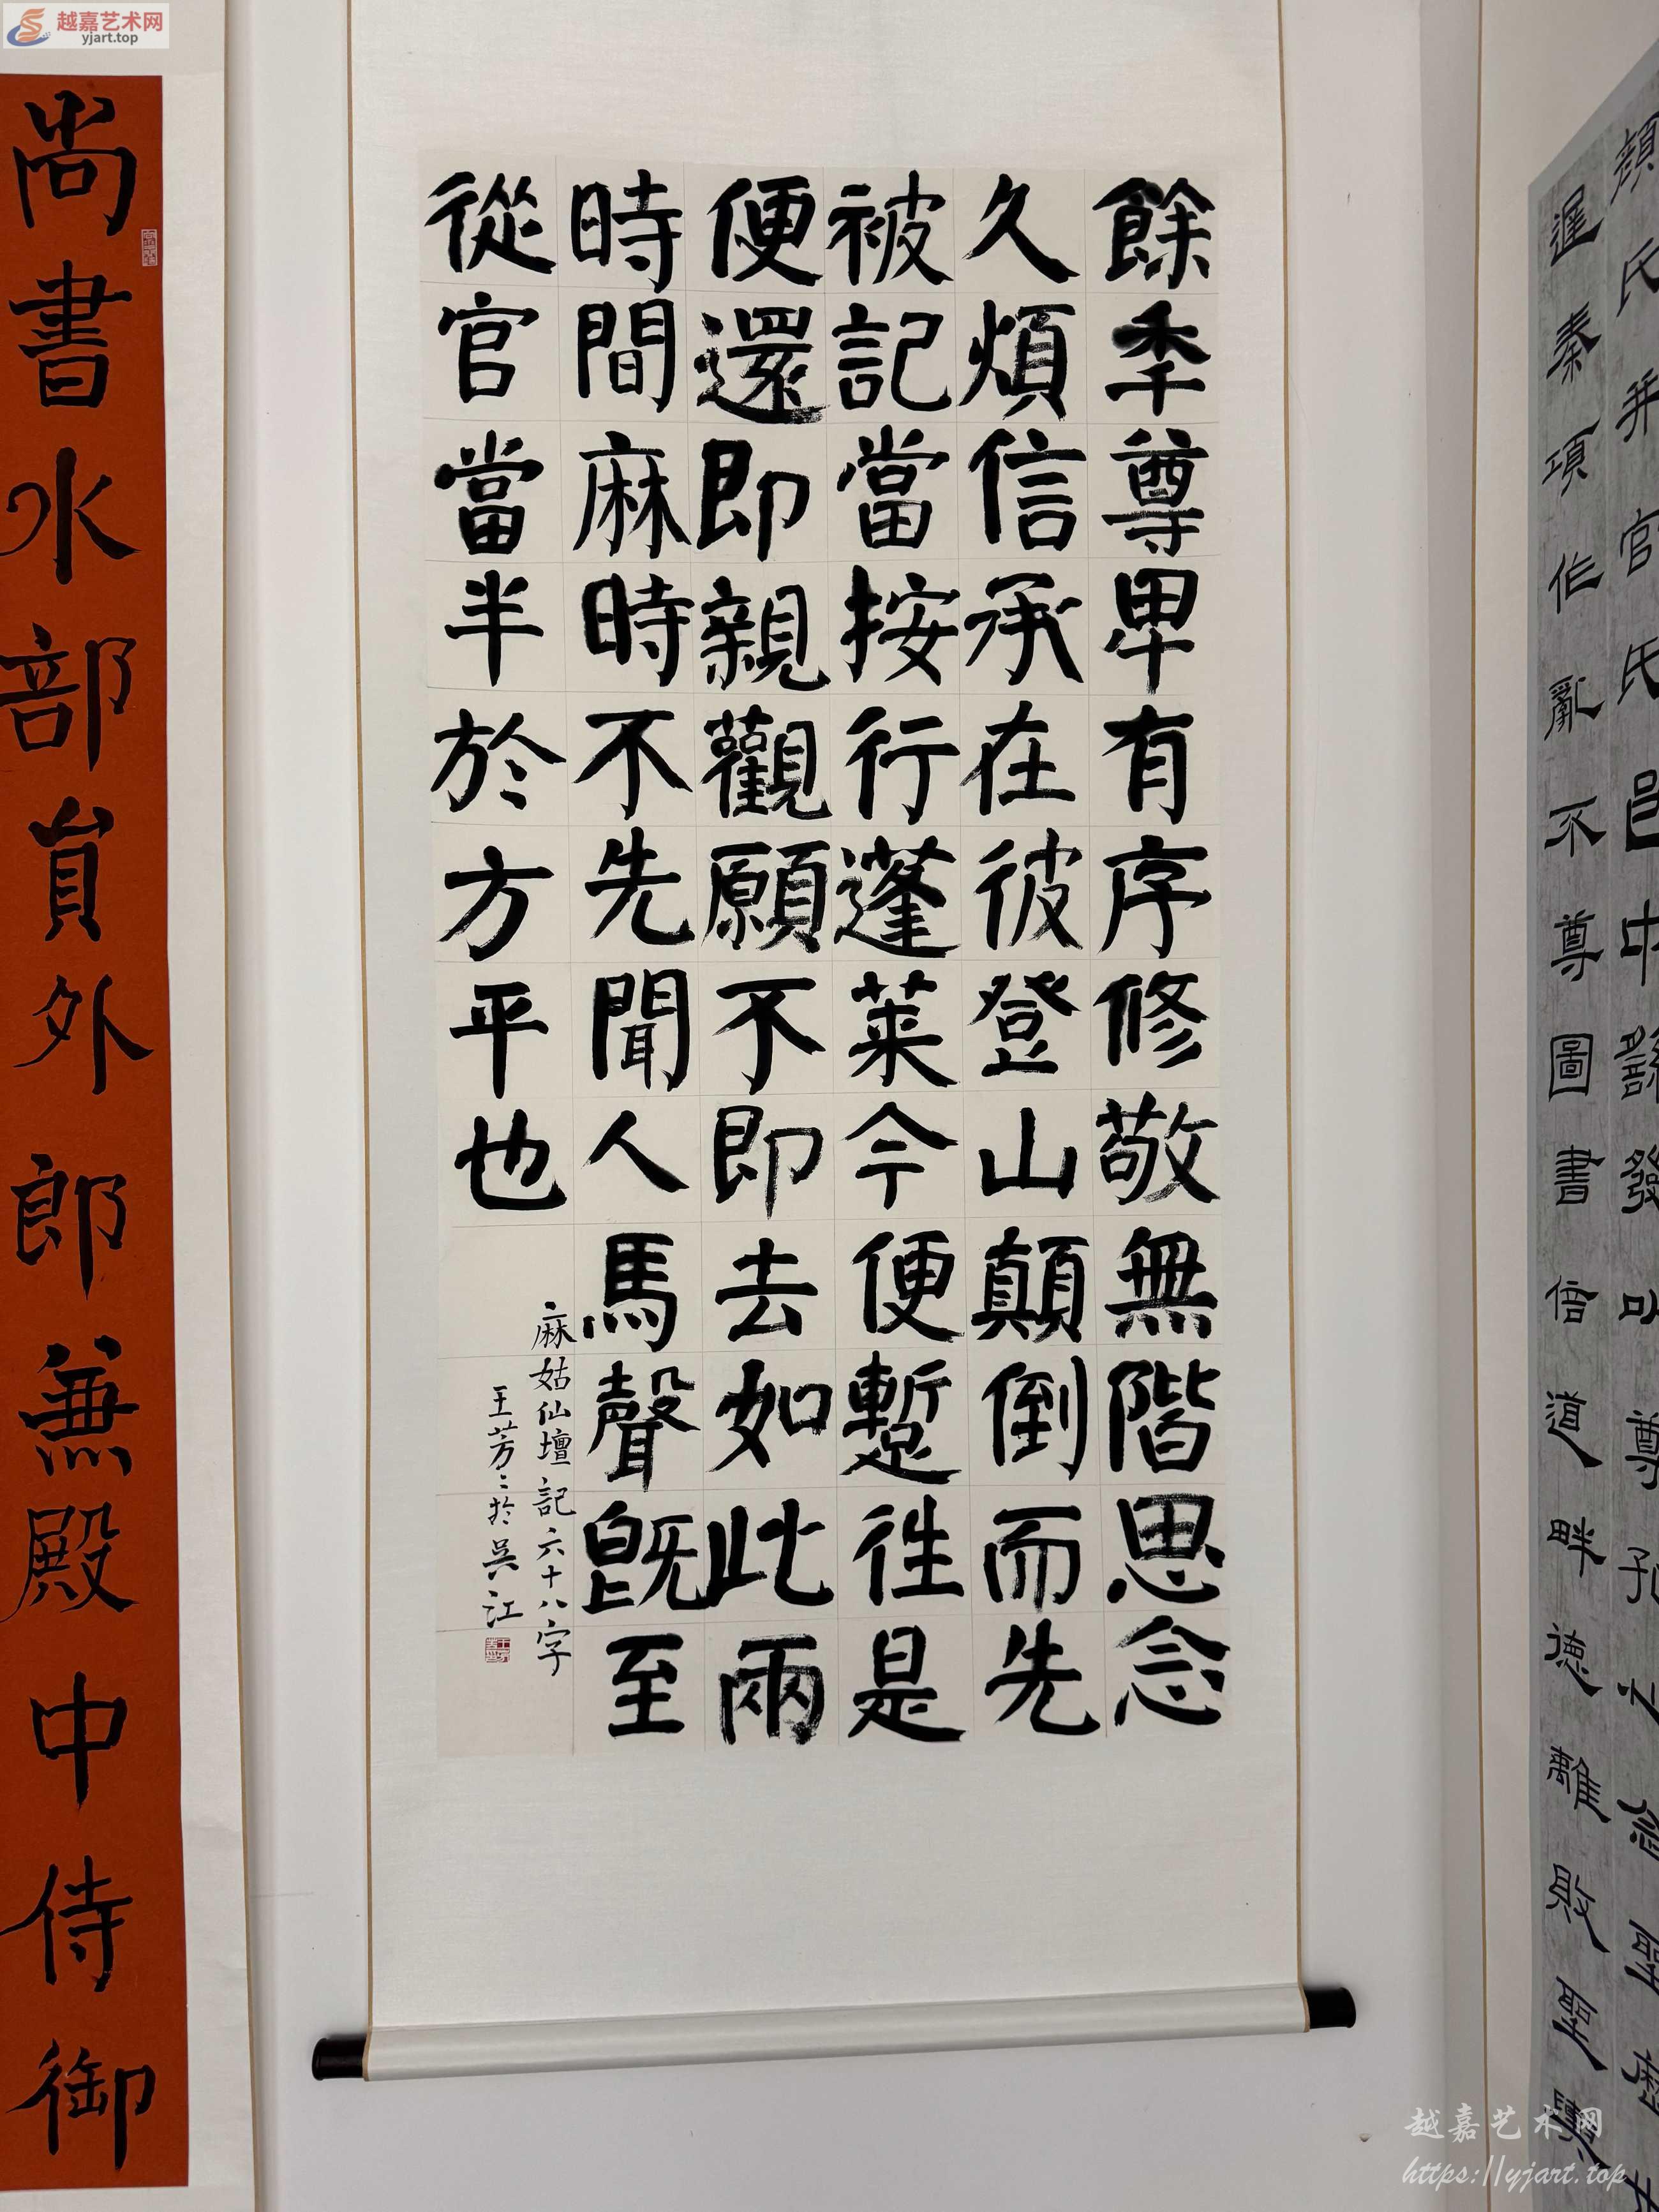 越嘉艺术网
yjart.top
餘季尊卑有序修敬無階思念
久煩信承在彼登山顛倒而先
被記當按行蓬萊今便蹔往是
便還即親觀願不即去如此兩
時間麻時不先聞人馬聲既至
從官當半於方平也
麻姑仙壇記六十八字
王芳〻於吳江
尚書水部貟外郎兼殿中侍御
顏氏并官氏邑中繇發以尊孔
遲秦項作亂不尊圖書倍道畔德離敗聖輿
越嘉艺术网
https://yjart.top